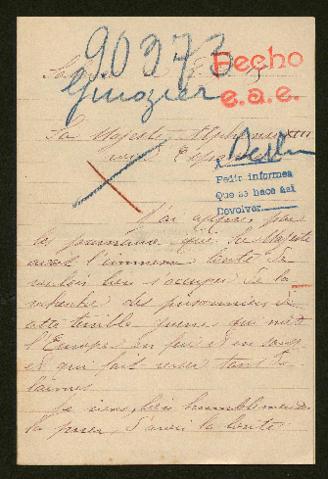 90373
Fecho
e.a.e.
Sa Majesté Alphonse XIII
Pedir informes
Que se hace así
Devolver
J'ai appris par
les journaux que Sa Majesté
avait l'immense bonté de
vouloir bien s'occuper de la
recherche des prisonniers de
cette terrible guerre qui met
l'Europe en feu et en sang
et qui fait verser tant de
larmes.
Je viens bien humblement
la prier d'avoir la bonté